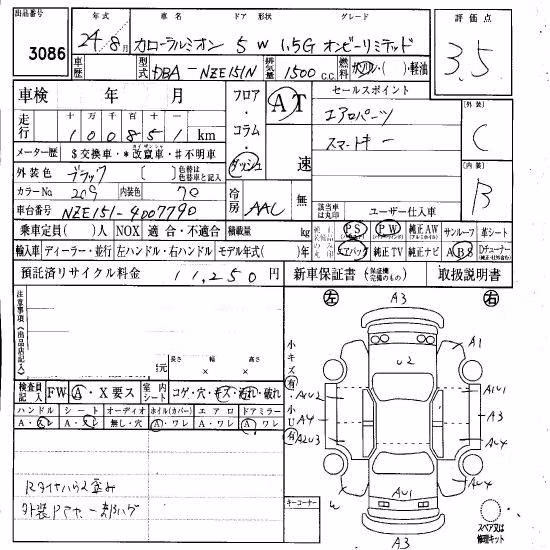 出品番号 3086
年式 24年8月
車名 カローラルミオン
ドア 形状 5 W
グレード 1.5G オンビーリミテッド
評価点 3.5
車歴
型式 DBA-NZE151N
排気量 1500 c.c.
燃料 ガソリン・( )・軽油
車検 年 月
フロア・コラム・ダッシュ
AT 速
セールスポイント
エアロパーツ
スマートキー
[外装] C
[内装] B
走行 十 万 千 百 十 一
100851 km
メーター歴 $交換車・*改竄車・#不明車
外装色 ブラック ( ) 色替車は元色と記入
カラーNo 209 内装色 70
冷房 AAC 無
該当車は丸印
ユーザー仕入車
車台番号 NZE151-4007790
乗車定員( )人 NOX 適合・不適合 積載量 kg
PS PW 純正AW サンルーフ 革シート
輸入車 ディーラー・並行 左ハンドル・右ハンドル モデル年式( )年
エアバック 純正TV 純正ナビ ABS Dチューナー
預託済リサイクル料金 11,250 円
新車保証書 取扱説明書
注意事項(出品店記入)
左 A3 右
冫元 長さ × 幅 × 高さ
小キズ有・小U有
A1
U2
A1U2 A1U1
A4 A3
A2U3 AUU4
検査員記入 FW A・X要ス 室内シート コゲ・穴・キズ・汚れ・破れ
ハンドル シート オーディオ ホイル(カバー) エアロ ドアミラー
A・スレ A・スレ 無し・穴 A・ワレ A・ワレ A・ワレ
AU1
W
Rタイヤハウス歪み
キーコーナー
スペア又は修理キット
A3